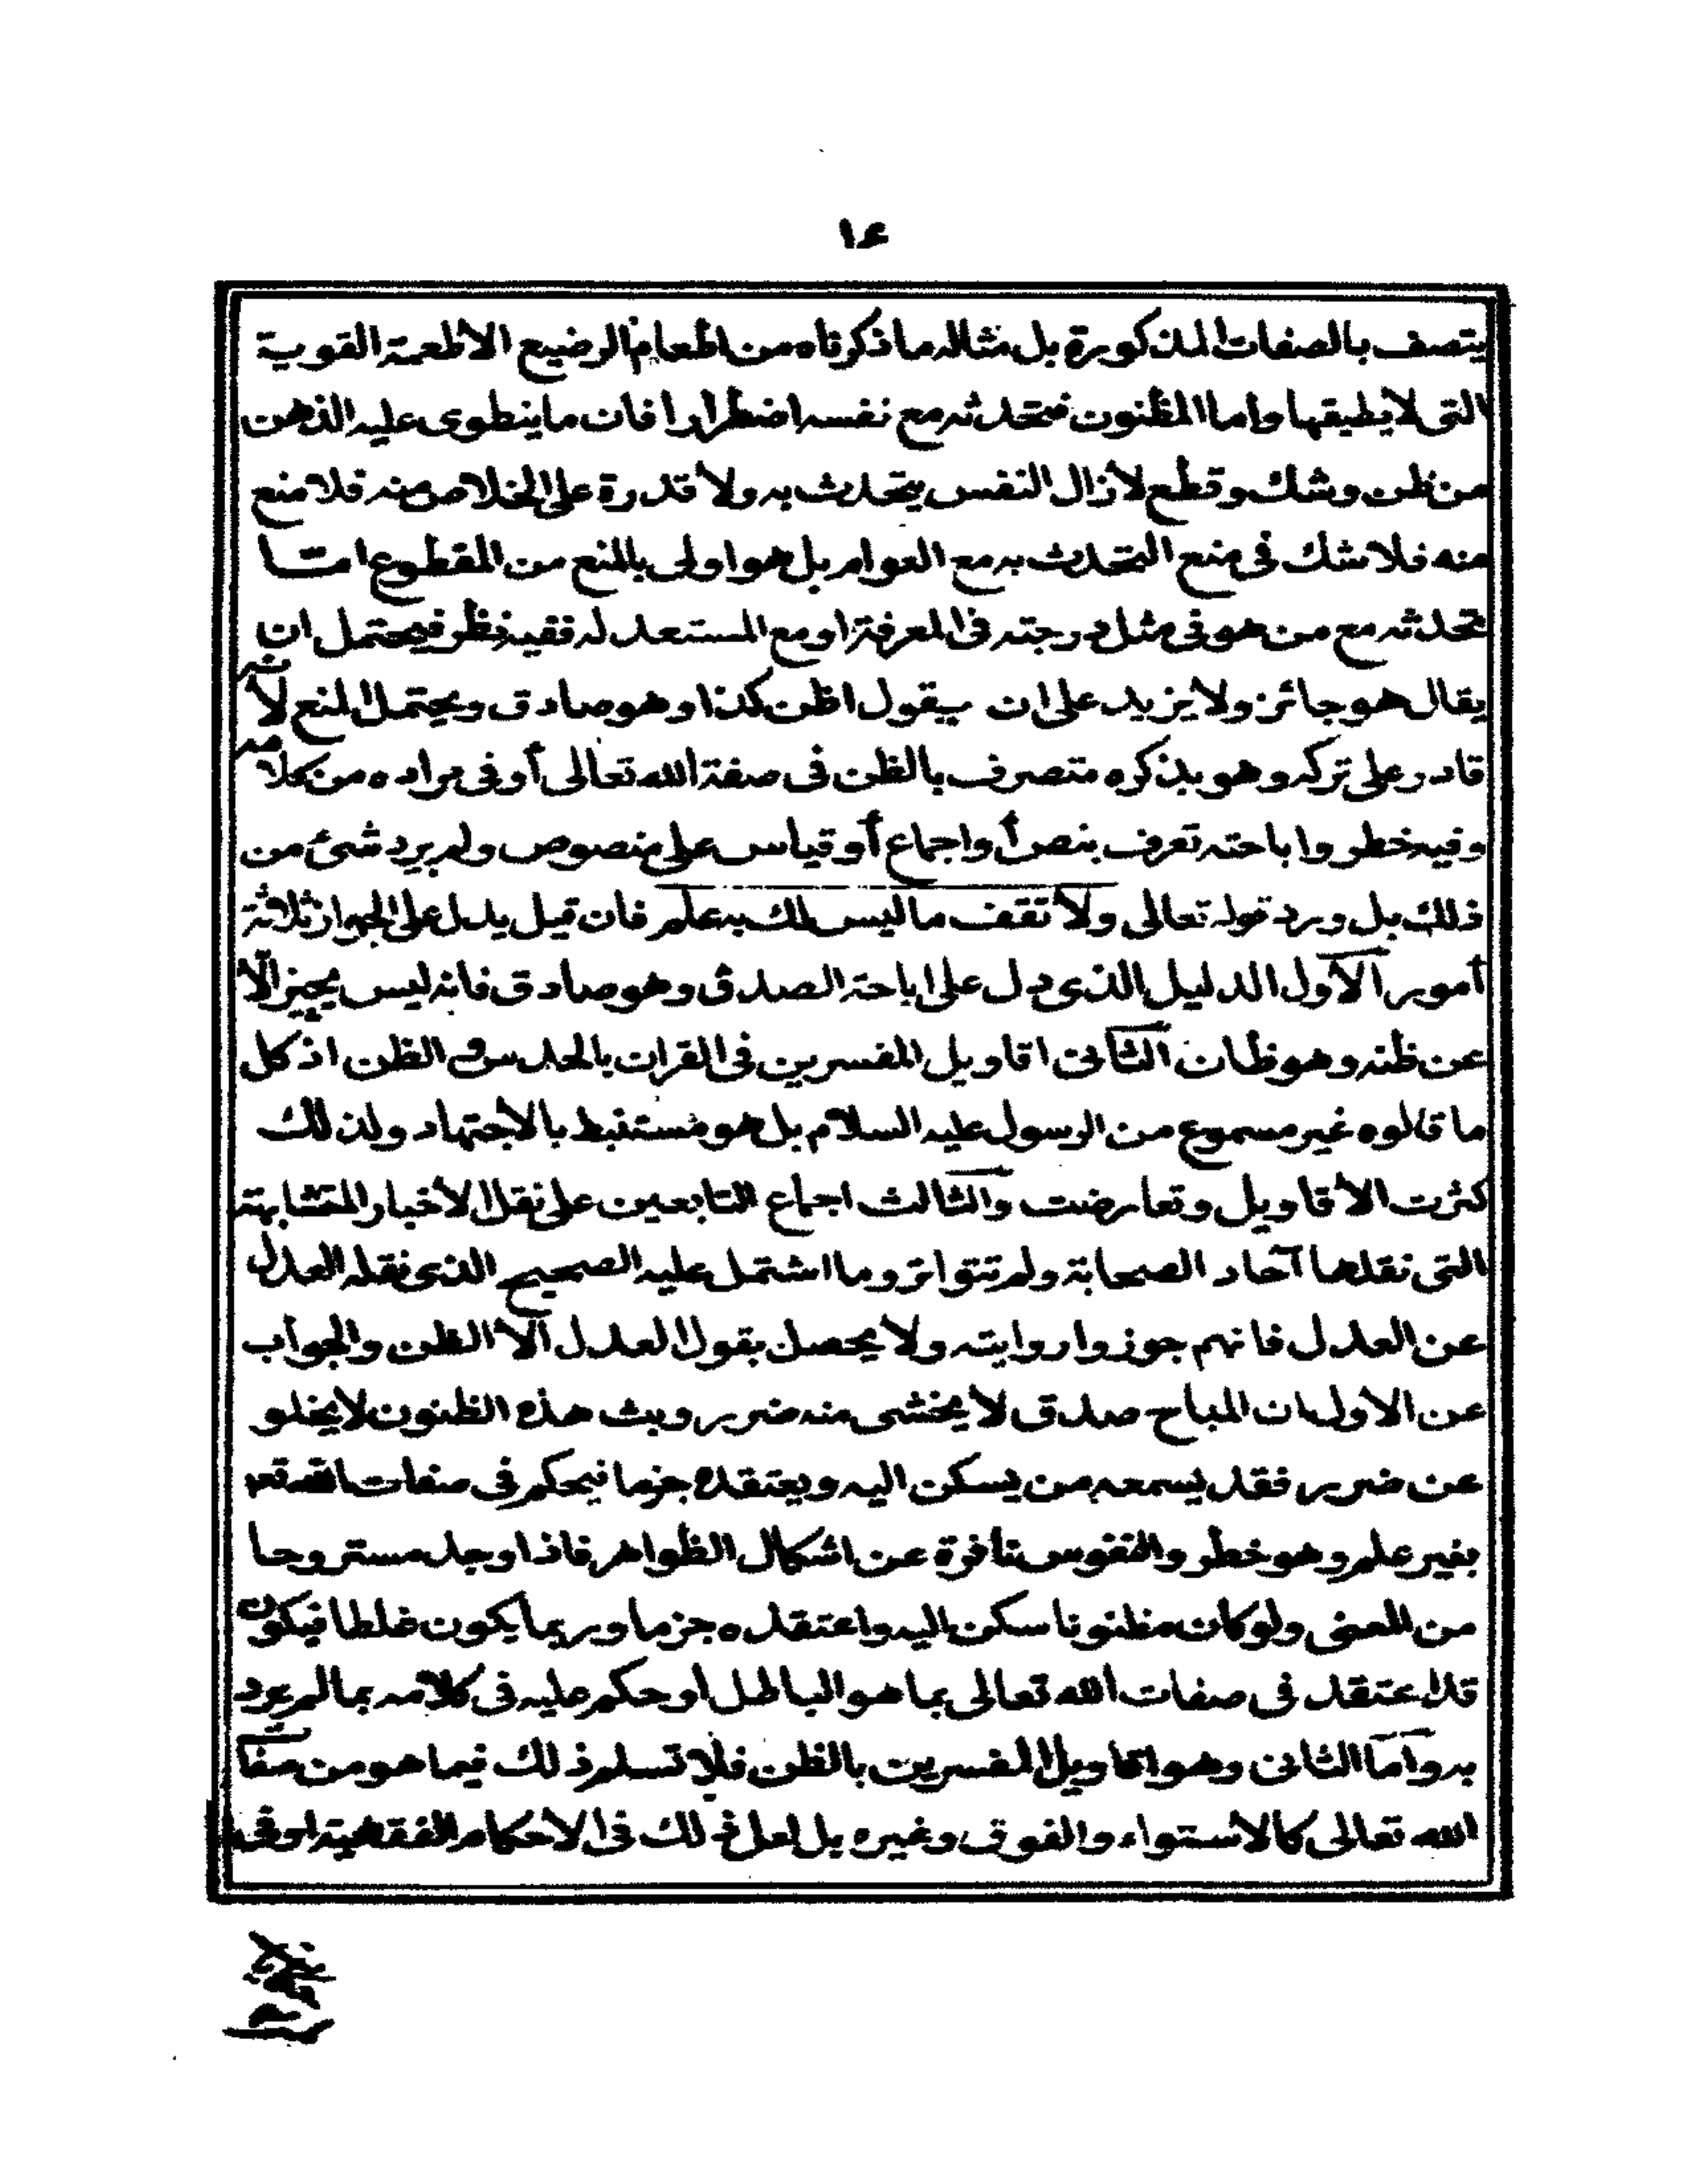 ١٤
يتصف بالصفات المذكورة بل مثاله ما ذكرناه من اطعام الرضيع الاطعمة القوية
التى لا يطيقها واما المظنون فتحدثه مع نفسه اضطرارا فان ما ينطوى عليه الذهن
من ظن وشك وقطع لا تزال النفس يتحدث به ولا قدرة على الخلاص منه فلا منع
منه فلا شك فى منع التحدث به مع العوام بل هو اولى بالمنع من المقطوع اما
تحدثه مع من هو فى مثل درجته فى المعرفة او مع المستعد له ففيه نظر فيحتمل ان
يقال هو جائز ولا يزيد على ان يقول اظن كذا وهو صادق ويحتمل المنع لأنه
قادر على تركه وهو بذكره متصرف بالظن فى صفة الله تعالى أو فى مراده من كلامه
وفيه خطر وإباحته تعرف بنص أو اجماع أو قياس على منصوص ولم يرد شئ من
ذلك بل ورد قوله تعالى ولا تقف ما ليس لك به علم فان قيل يدل على الجواز ثلاثة
أمور الأول الدليل الذى دل على اباحة الصدق وهو صادق فانه ليس يخبر الّا
عن ظنه وهو ظان الثانى اقاويل المفسرين فى القران بالحدس والظن اذ كل
ما قالوه غير مسموع من الرسول عليه السلام بل هو مستنبط بالاجتهاد ولذلك
كثرت الأقاويل وتعارضت والثالث اجماع التابعين على نقل الأخبار المتشابهة
التى نقلها آحاد الصحابة ولم تتواتر وما اشتمل عليه الصحيح الذى نقله العدل
عن العدل فانهم جوزوا روايته ولا يحصل بقول العدل الّا الظن والجواب
عن الاول ان المباح صدق لا يخشى منه ضرر وبث هذه الظنون لا يخلو
عن ضرر فقد يسمعه من يسكن اليه ويعتقده جزما فيحكم فى صفات الله تعه
بغير علم وهو خطر والنفوس نافرة عن اشكال الظواهر فاذا وجد مستروحا
من المعنى ولو كان مظنونا سكن اليه واعتقده جزما وربما يكون غلطا فيكون
قد اعتقد فى صفات الله تعالى بما هو الباطل او حكم عليه فى كلامه بما لم يرد
به وأما الثانى وهو اقاويل المفسرين بالظن فلا تسلم ذلك فيما هو من صفات
الله تعالى كالاستواء والفوق وغيره بل لعل ذلك فى الاحكام الفقهية او فى